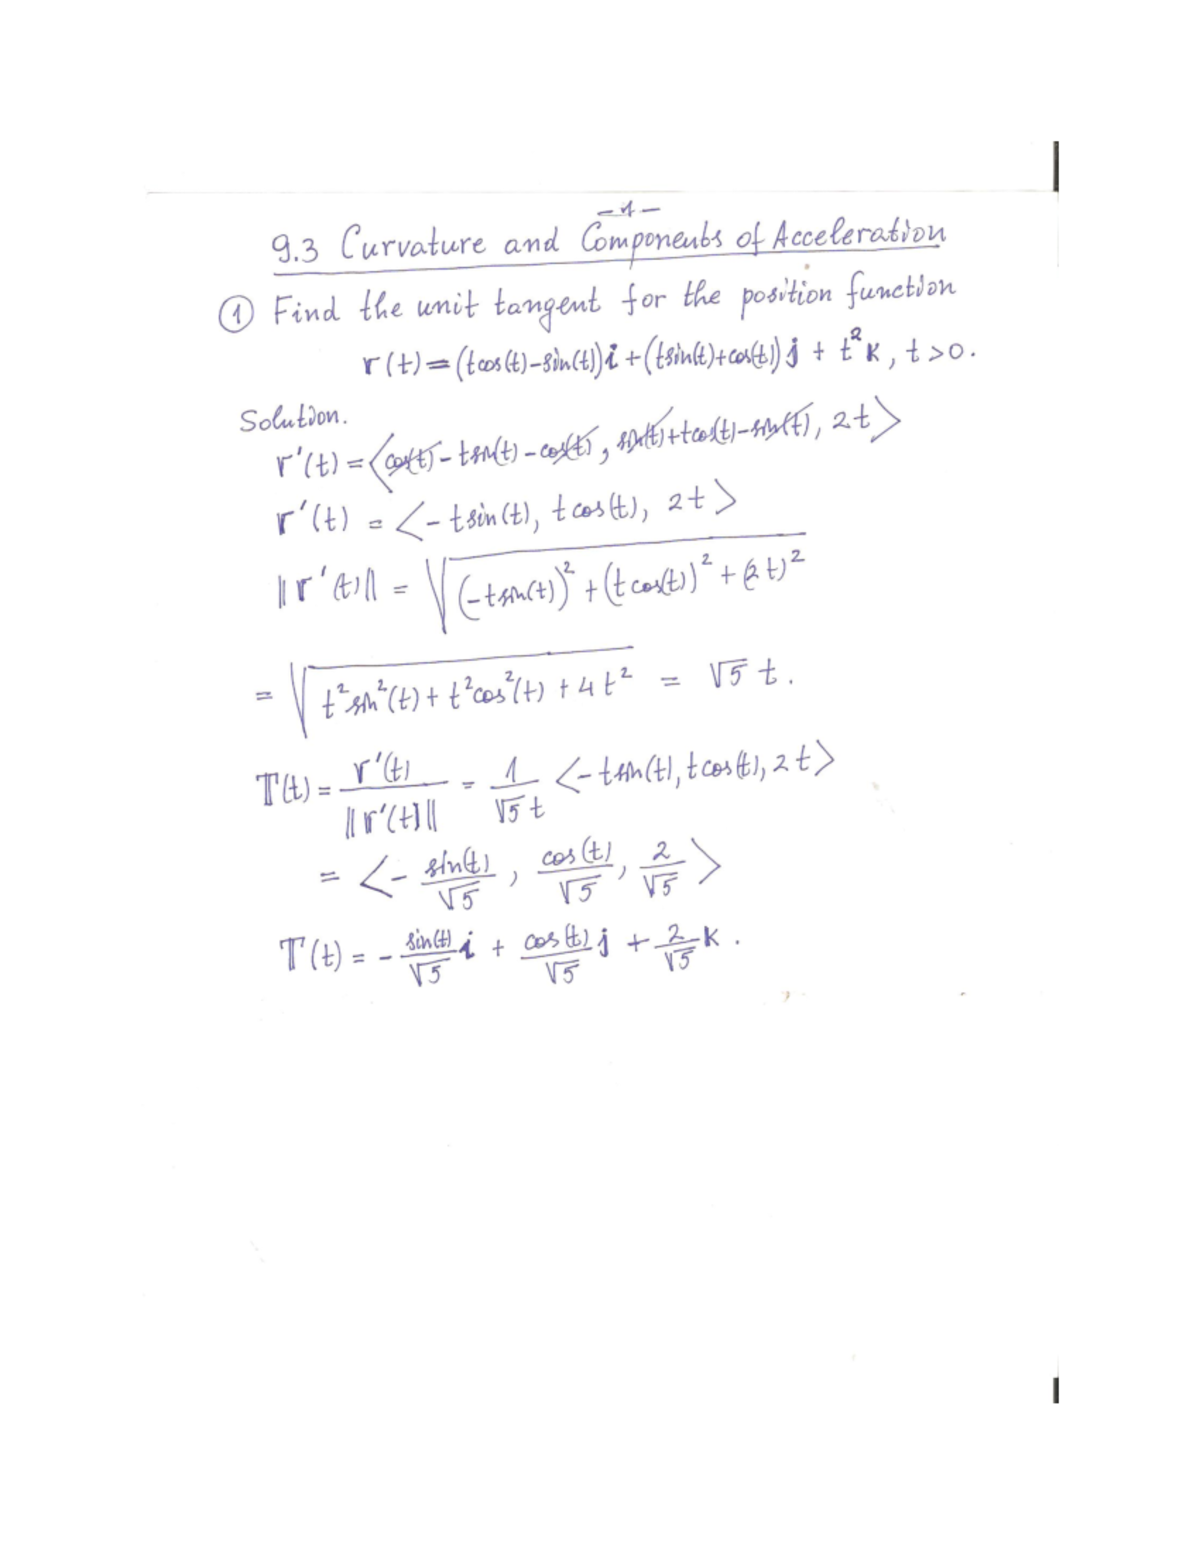 -1-
9.3 Curvature and Components of Acceleration
① Find the unit tangent for the position function
r(t) = (tcos(t)-sin(t))i + (tsin(t)+cos(t))j + t²k, t>0.
Solution.
r'(t) = <cos(t) - tsin(t) - cos(t), sin(t)+tcos(t)-sin(t), 2t>
r'(t) = <-tsin(t), tcos(t), 2t>
||r'(t)|| = √((-tsin(t))² + (tcos(t))² + (2t)²)
= √(t²sin²(t) + t²cos²(t) + 4t²) = √5 t.
T(t) = r'(t)/||r'(t)|| = 1/(√5 t) <-tsin(t), tcos(t), 2t>
= <- sin(t)/√5, cos(t)/√5, 2/√5>
T(t) = - sin(t)/√5 i + cos(t)/√5 j + 2/√5 k.